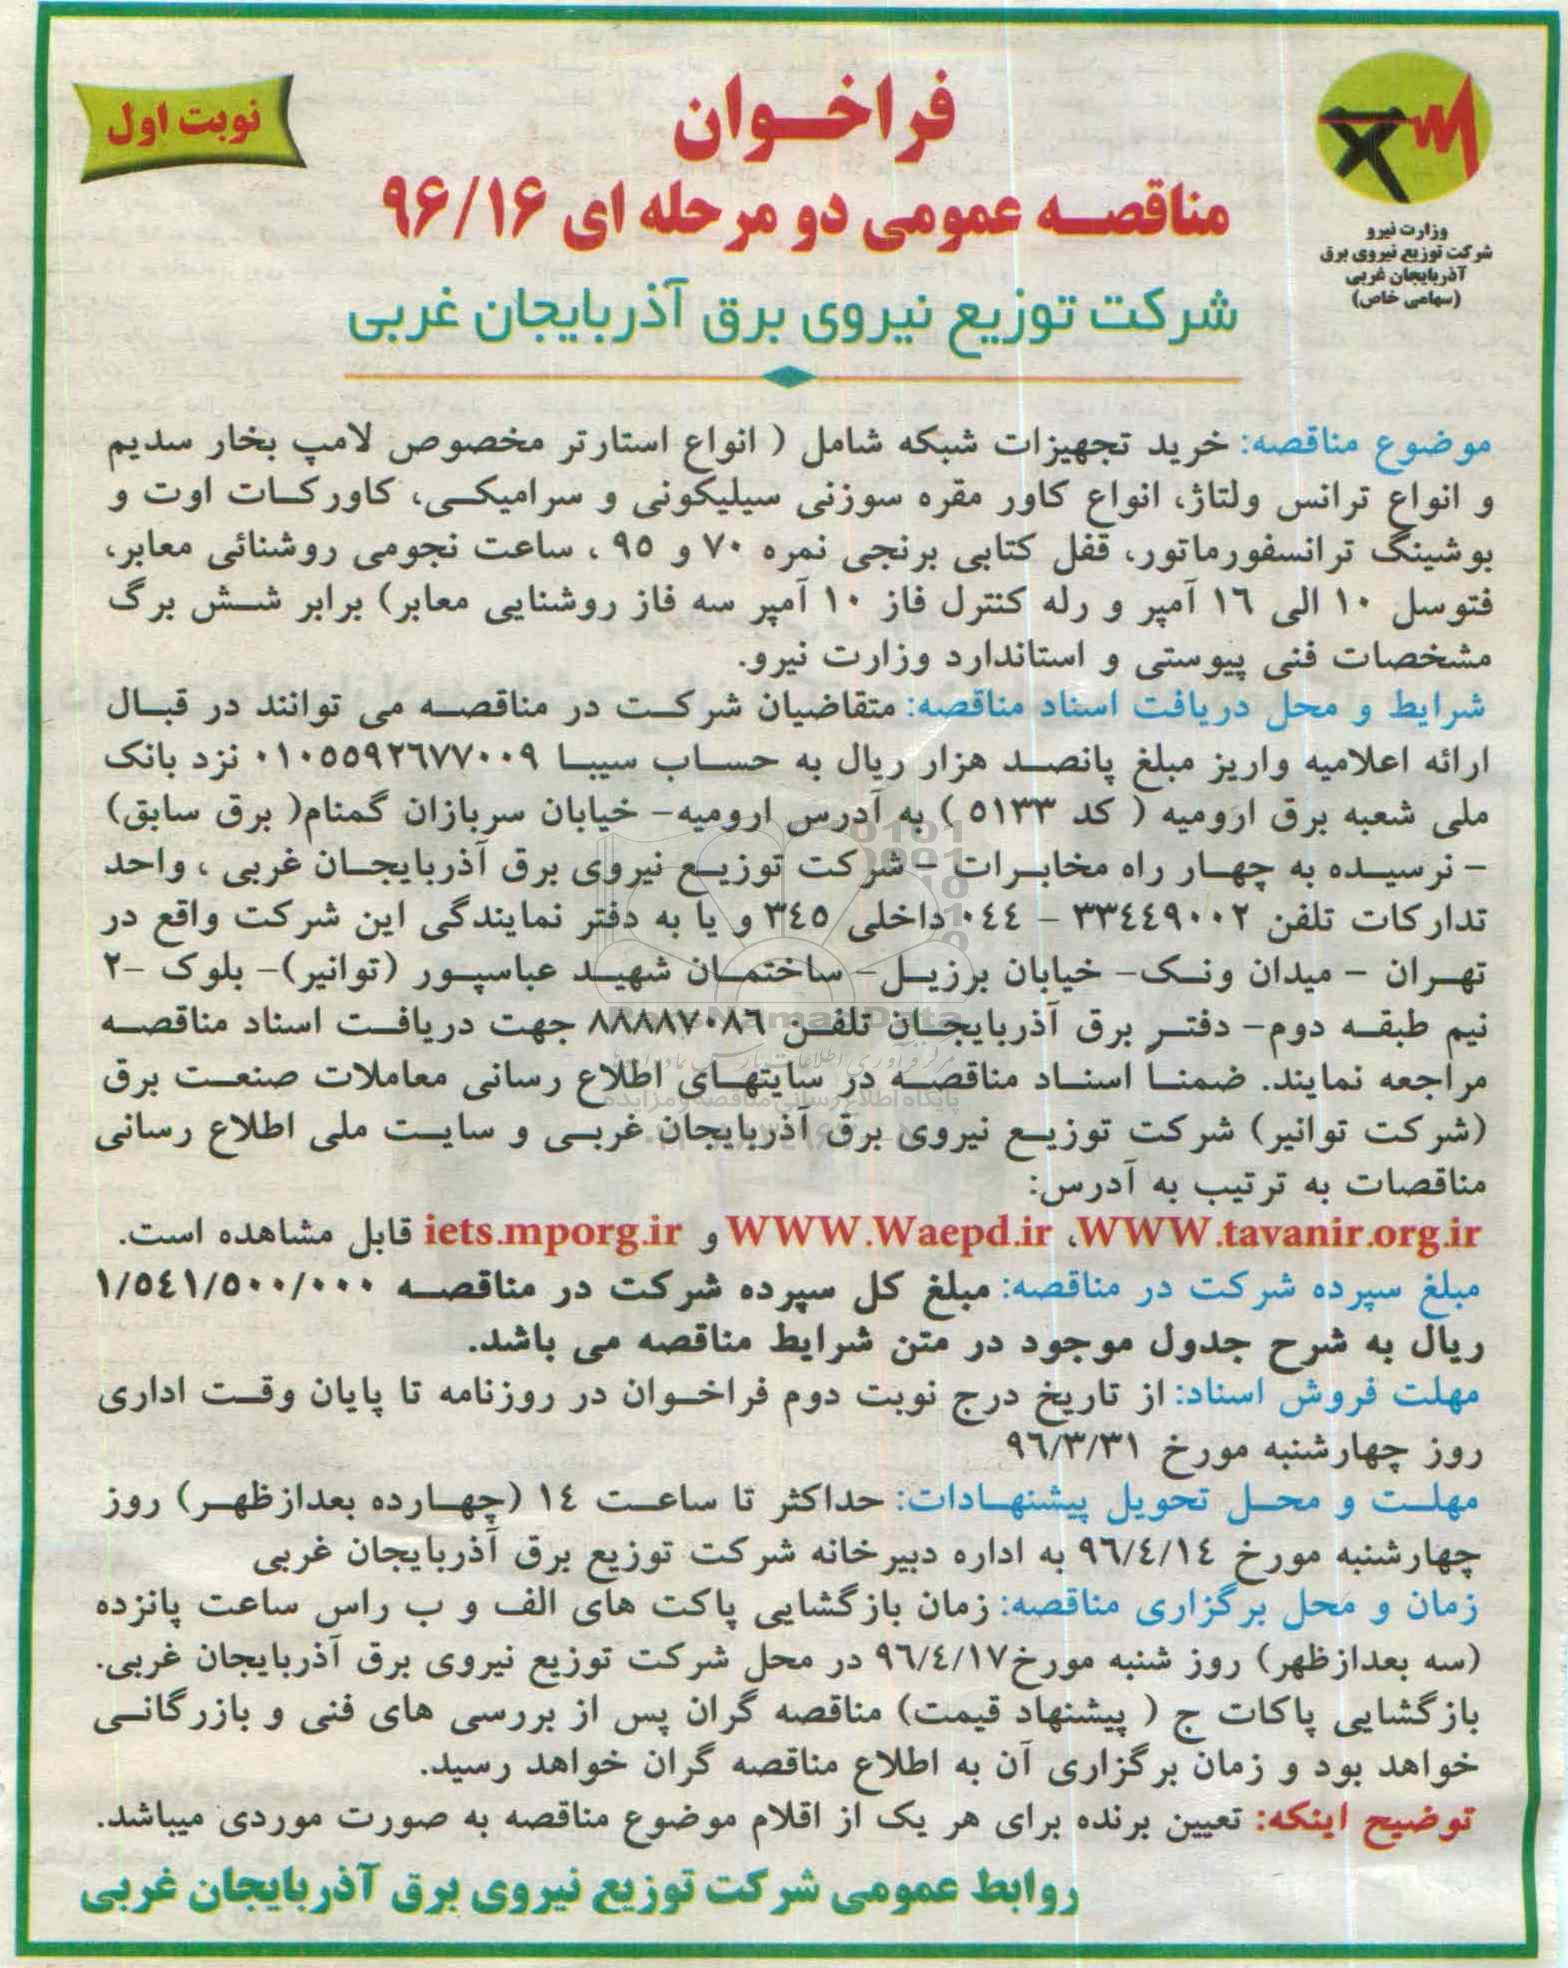 فراخوان
نوبت اول
مناقصه عمومی دو مرحله ای ۹۶/۱۶
وزارت نیرو
شرکت توزیع نیروی برق
آذربایجان غربی
(سهامی خاص)
شرکت توزیع نیروی برق آذربایجان غربی
موضوع مناقصه: خرید تجهیزات شبکه شامل ( انواع استارتر مخصوص لامپ بخار سدیم
و انواع ترانس ولتاژ، انواع کاور مقره سوزنی سیلیکونی و سرامیکی، کاورکات اوت و
بوشینگ ترانسفورماتور، قفل کتابی برنجی نمره ۷۰ و ۹۵ ، ساعت نجومی روشنائی معابر،
فتوسل ۱۰ الی ۱۶ آمپر و رله کنترل فاز ۱۰ آمپر سه فاز روشنایی معابر) برابر شش برگ
مشخصات فنی پیوستی و استاندارد وزارت نیرو.
شرایط و محل دریافت اسناد مناقصه: متقاضیان شرکت در مناقصه می توانند در قبال
ارائه اعلامیه واریز مبلغ پانصد هزار ریال به حساب سیبا ۰۱۰۵۵۹۲۶۷۷۰۰۹ نزد بانک
ملی شعبه برق ارومیه ( کد ۵۱۳۳ ) به آدرس ارومیه- خیابان سربازان گمنام( برق سابق)
- نرسیده به چهار راه مخابرات - شرکت توزیع نیروی برق آذربایجان غربی ، واحد
تدارکات تلفن ۳۳۴۴۹۰۰۲ - ۰۴۴ داخلی ۳۴۵ و یا به دفتر نمایندگی این شرکت واقع در
تهران - میدان ونک- خیابان برزیل- ساختمان شهید عباسپور (توانیر)- بلوک -۲
نیم طبقه دوم- دفتر برق آذربایجان تلفن ۸۸۸۸۷۰۸۶ جهت دریافت اسناد مناقصه
مراجعه نمایند. ضمناً اسناد مناقصه در سایتهای اطلاع رسانی معاملات صنعت برق
(شرکت توانیر) شرکت توزیع نیروی برق آذربایجان غربی و سایت ملی اطلاع رسانی
مناقصات به ترتیب به آدرس:
WWW.tavanir.org.ir، WWW.Waepd.ir و iets.mporg.ir قابل مشاهده است.
مبلغ سپرده شرکت در مناقصه: مبلغ کل سپرده شرکت در مناقصه ۱/۵۴۱/۵۰۰/۰۰۰
ریال به شرح جدول موجود در متن شرایط مناقصه می باشد.
مهلت فروش اسناد: از تاریخ درج نوبت دوم فراخوان در روزنامه تا پایان وقت اداری
روز چهارشنبه مورخ ۹۶/۳/۳۱
مهلت و محل تحویل پیشنهادات: حداکثر تا ساعت ۱۴ (چهارده بعدازظهر) روز
چهارشنبه مورخ ۹۶/۴/۱۴ به اداره دبیرخانه شرکت توزیع برق آذربایجان غربی
زمان و محل برگزاری مناقصه: زمان بازگشایی پاکت های الف و ب راس ساعت پانزده
(سه بعدازظهر) روز شنبه مورخ۹۶/۴/۱۷ در محل شرکت توزیع نیروی برق آذربایجان غربی.
بازگشایی پاکات ج ( پیشنهاد قیمت) مناقصه گران پس از بررسی های فنی و بازرگانی
خواهد بود و زمان برگزاری آن به اطلاع مناقصه گران خواهد رسید.
توضیح اینکه: تعیین برنده برای هر یک از اقلام موضوع مناقصه به صورت موردی میباشد.
روابط عمومی شرکت توزیع نیروی برق آذربایجان غربی